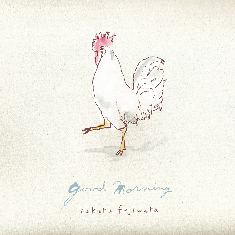 Good Morning
sakata fujiwata